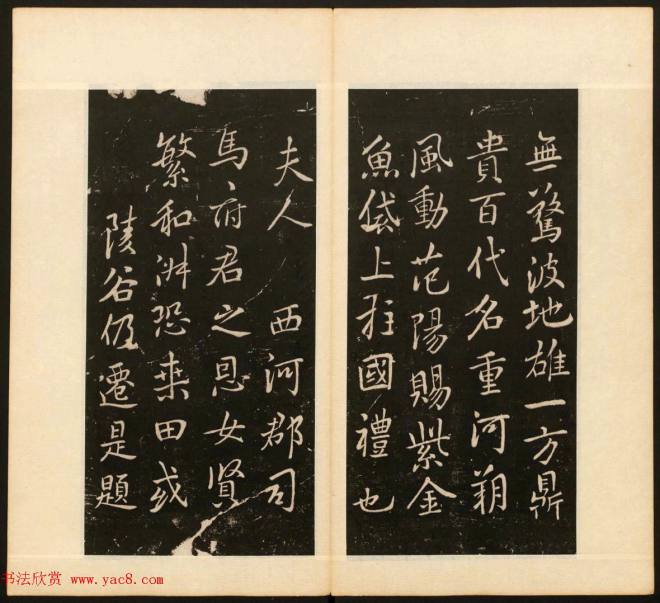 無驚波地雄一方鼎
貴百代名重河朔
風動范陽賜紫金
魚袋上柱國禮也
夫人 西河郡司
馬府君之息女賢
繁和淋恐桒田或
陵谷仍遷是題
书法欣赏 www.yac8.com